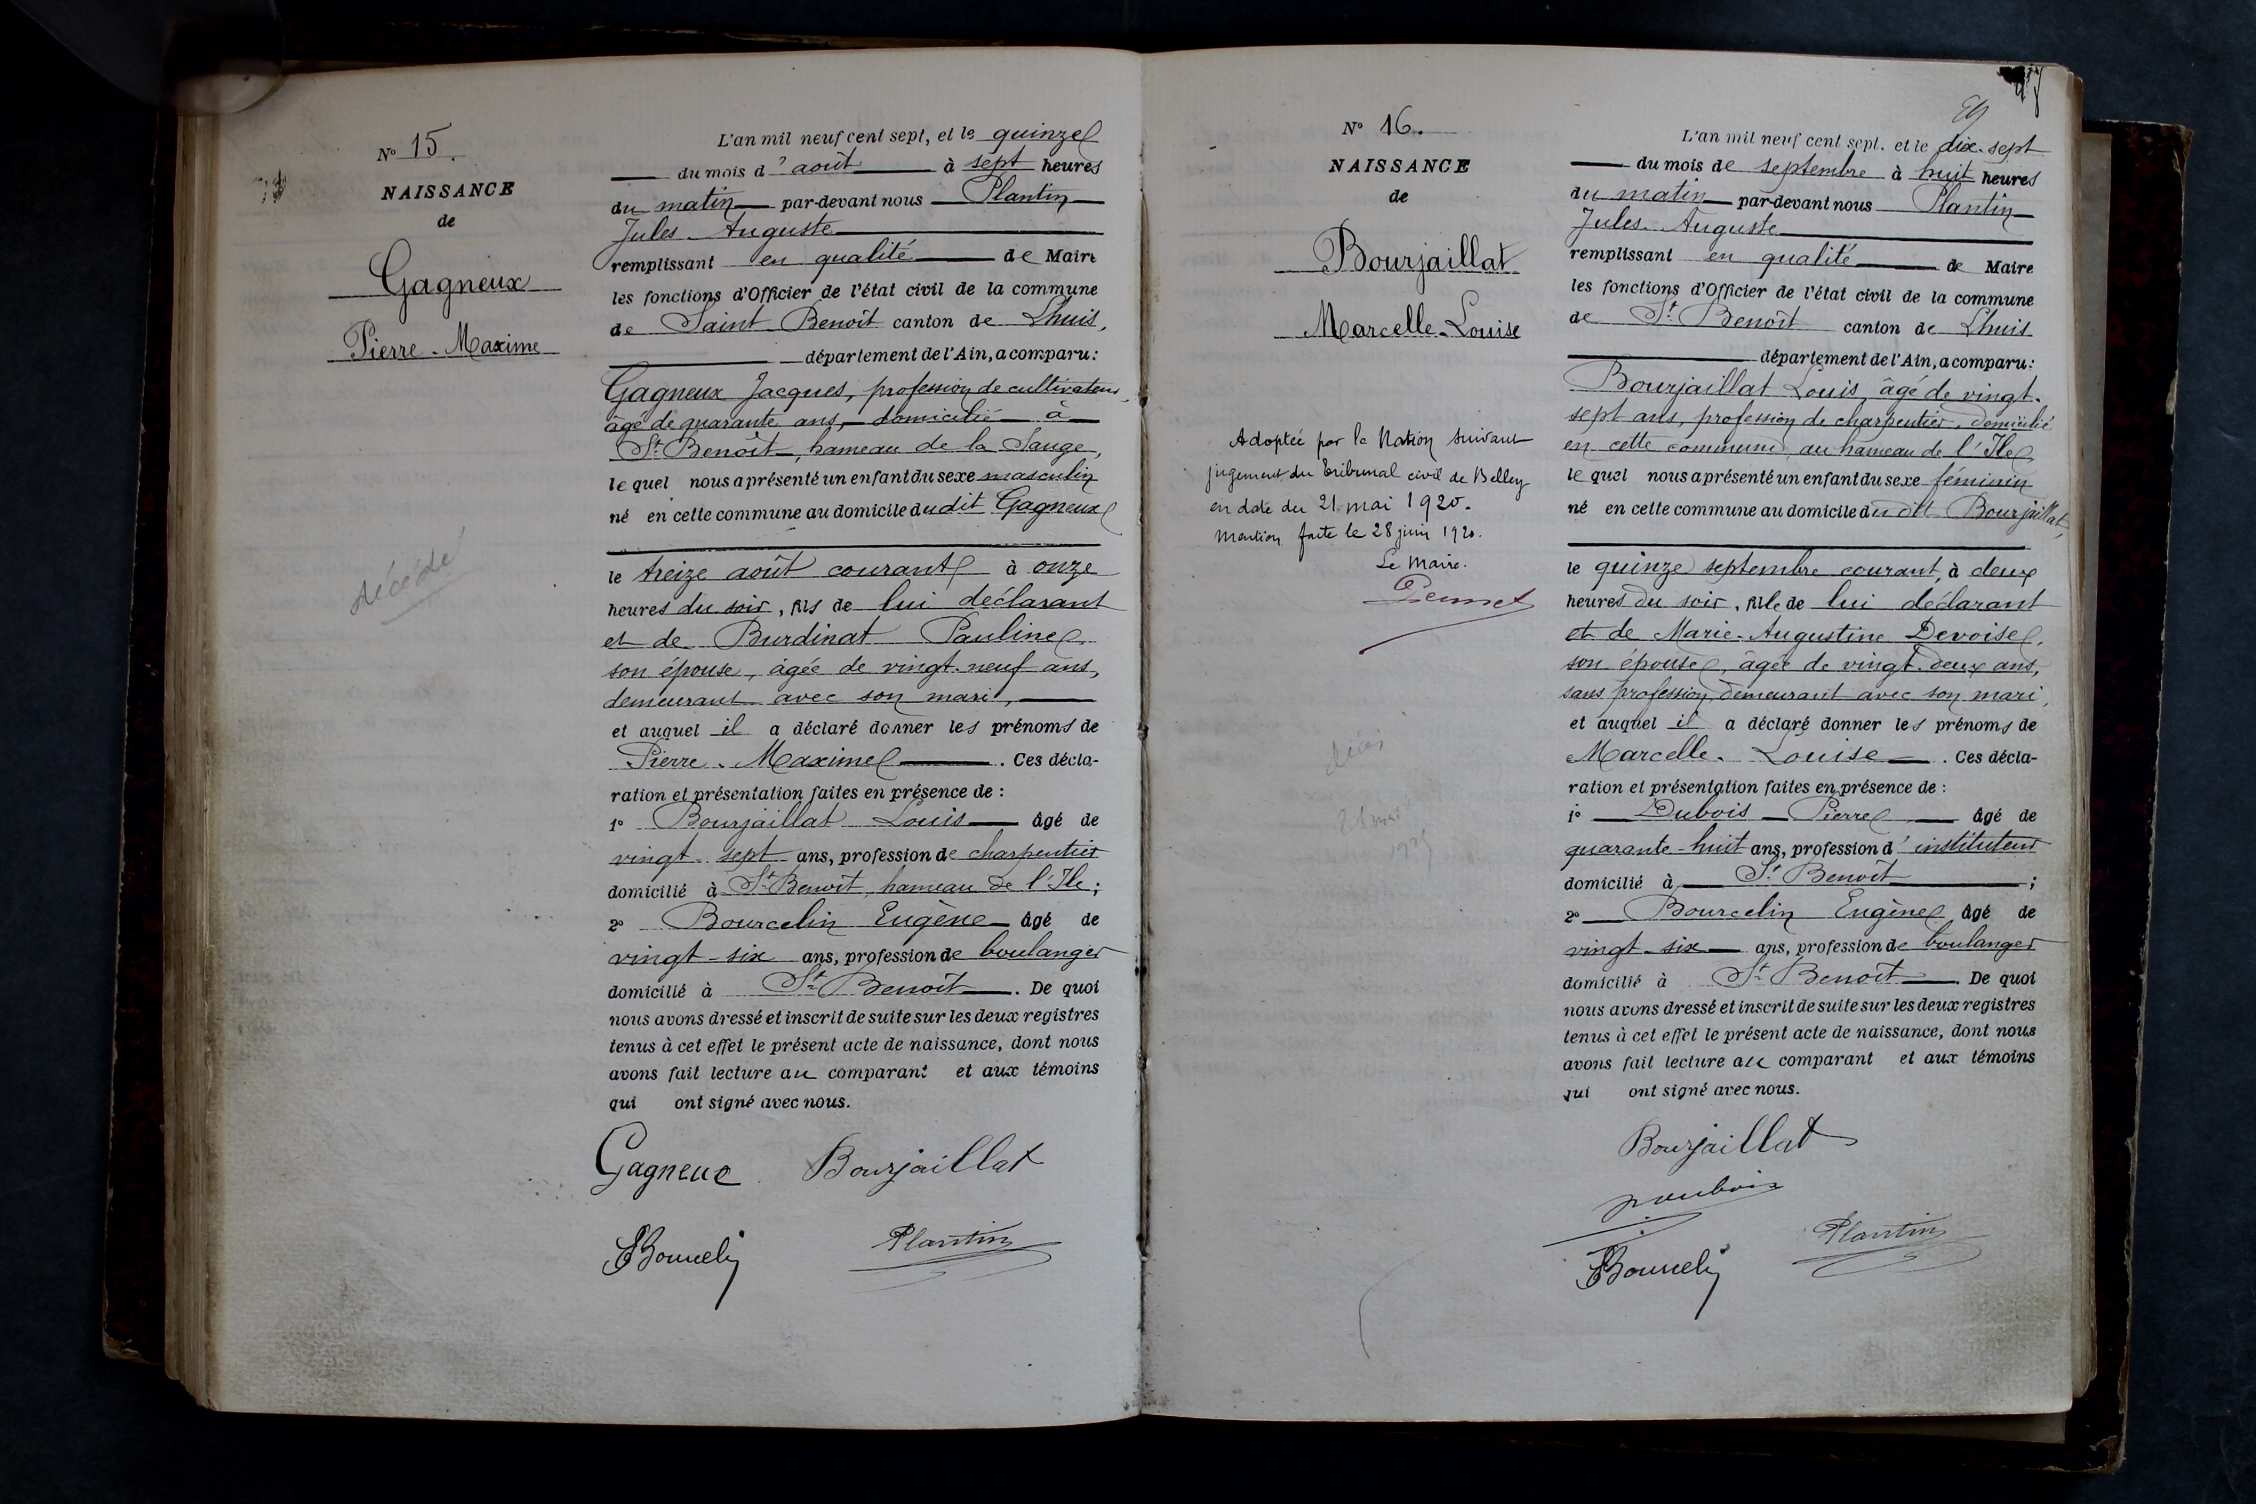 Nº 15.
NAISSANCE
de
Gagneux
Pierre-Maxime
décédé
L'an mil neuf cent sept, et le quinze
du mois d'août à sept heures
du matin par-devant nous Plantin
Jules-Auguste
remplissant en qualité de Maire
les fonctions d'Officier de l'état civil de la commune
de Saint-Benoît canton de Lhuis,
département de l'Ain, a comparu:
Gagneux Jacques, profession de cultivateur,
âgé de quarante ans, domicilié à
St Benoît, hameau de la Sauge,
lequel nous a présenté un enfant du sexe masculin
né en cette commune au domicile du dit Gagneux
le treize août courant à onze
heures du soir, fils de lui déclarant
et de Burdinat Pauline
son épouse, âgée de vingt-neuf ans,
demeurant avec son mari,
et auquel il a déclaré donner les prénoms de
Pierre-Maxime. Ces décla-
ration et présentation faites en présence de :
1º Bourjaillat Louis âgé de
vingt-sept ans, profession de charpentier
domicilié à St Benoît, hameau de l'Ile;
2º Bourcelin Eugène âgé de
vingt-six ans, profession de boulanger
domicilié à St Benoît. De quoi
nous avons dressé et inscrit de suite sur les deux registres
tenus à cet effet le présent acte de naissance, dont nous
avons fait lecture au comparant et aux témoins
qui ont signé avec nous.
Gagneux Bourjaillat
EBourcelin Plantin
Nº 16.
NAISSANCE
de
Bourjaillat
Marcelle-Louise
Adoptée par la Nation suivant
jugement du tribunal civil de Belley
en date du 21 mai 1920.
Mention faite le 28 juin 1920.
Le Maire.
L'an mil neuf cent sept. et le dix-sept
du mois de septembre à huit heures
du matin par-devant nous Plantin
Jules-Auguste
remplissant en qualité de Maire
les fonctions d'Officier de l'état civil de la commune
de St Benoît canton de Lhuis
département de l'Ain, a comparu:
Bourjaillat Louis, âgé de vingt-
sept ans, profession de charpentier, domicilié
en cette commune, au hameau de l'Ile
lequel nous a présenté un enfant du sexe féminin
né en cette commune au domicile du dit Bourjaillat,
le quinze septembre courant, à deux
heures du soir, fille de lui déclarant
et de Marie-Augustine Devoise,
son épouse, âgée de vingt-deux ans,
sans profession, demeurant avec son mari,
et auquel il a déclaré donner les prénoms de
Marcelle-Louise. Ces décla-
ration et présentation faites en présence de :
1º Dubois Pierre âgé de
quarante-huit ans, profession d'instituteur
domicilié à St Benoît;
2º Bourcelin Eugène âgé de
vingt-six ans, profession de boulanger
domicilié à St Benoît. De quoi
nous avons dressé et inscrit de suite sur les deux registres
tenus à cet effet le présent acte de naissance, dont nous
avons fait lecture au comparant et aux témoins
qui ont signé avec nous.
Bourjaillat
PDubois
EBourcelin Plantin